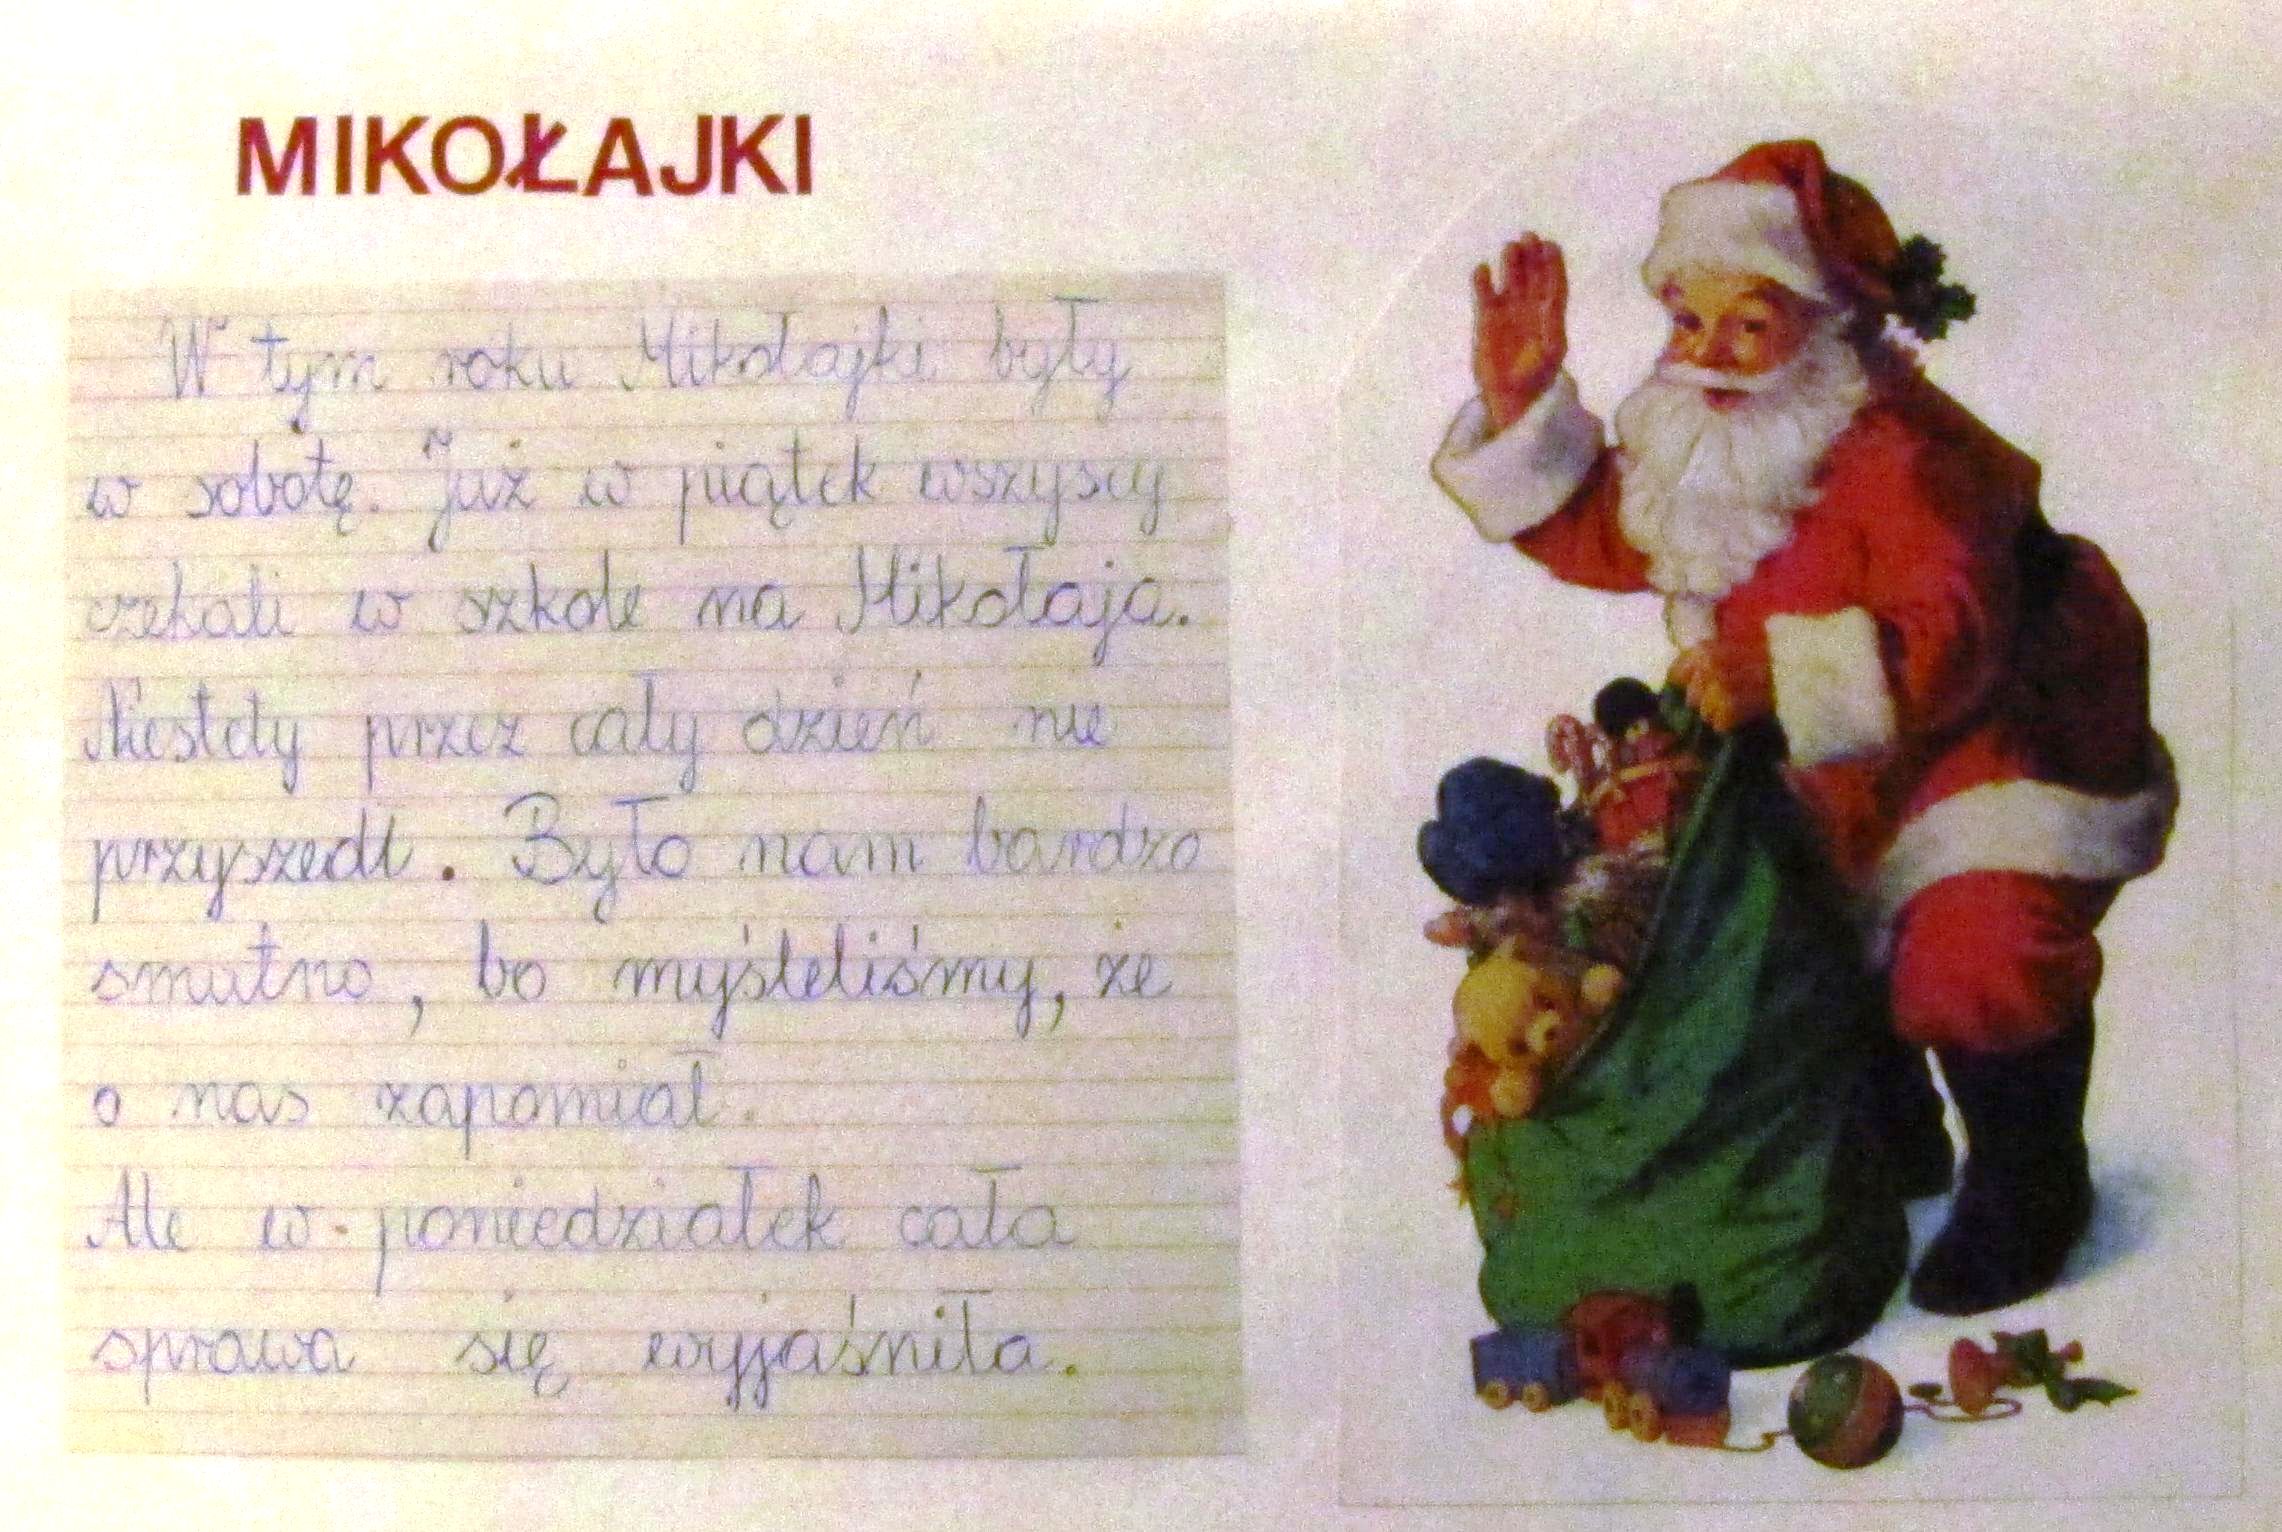 MIKOŁAJKI
W tym roku Mikołajki były
w sobotę. Już w piątek wszyscy
czekali w szkole na Mikołaja.
Niestety przez cały dzień nie
przyszedł. Było nam bardzo
smutno, bo myśleliśmy, że
o nas zapomiał.
Ale w poniedziałek cała
sprawa się wyjaśniła.